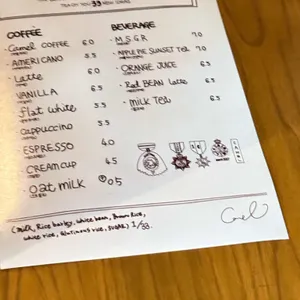 TEACH YOU 33 NEW IDEAS
COFFEE
Camel COFFEE 6.0
AMERICANO 5.5
Latte 6.0
VANILLA 6.5
flat white 5.5
cappuccino 5.5
ESPRESSO 4.0
CREAM CUP 4.5
oat milk 0.5
BEVERAGE
M.S.G.R 7.0
APPLE PIE SUNSET Tea 7.0
ORANGE JUICE 6.5
Red BEAN Latte 6.5
MILK TEA 6.5
(milk, Rice barley, white bean, Brown Rice,
white rice, Glutinous rice, SUGAR) 1/33.
Camel